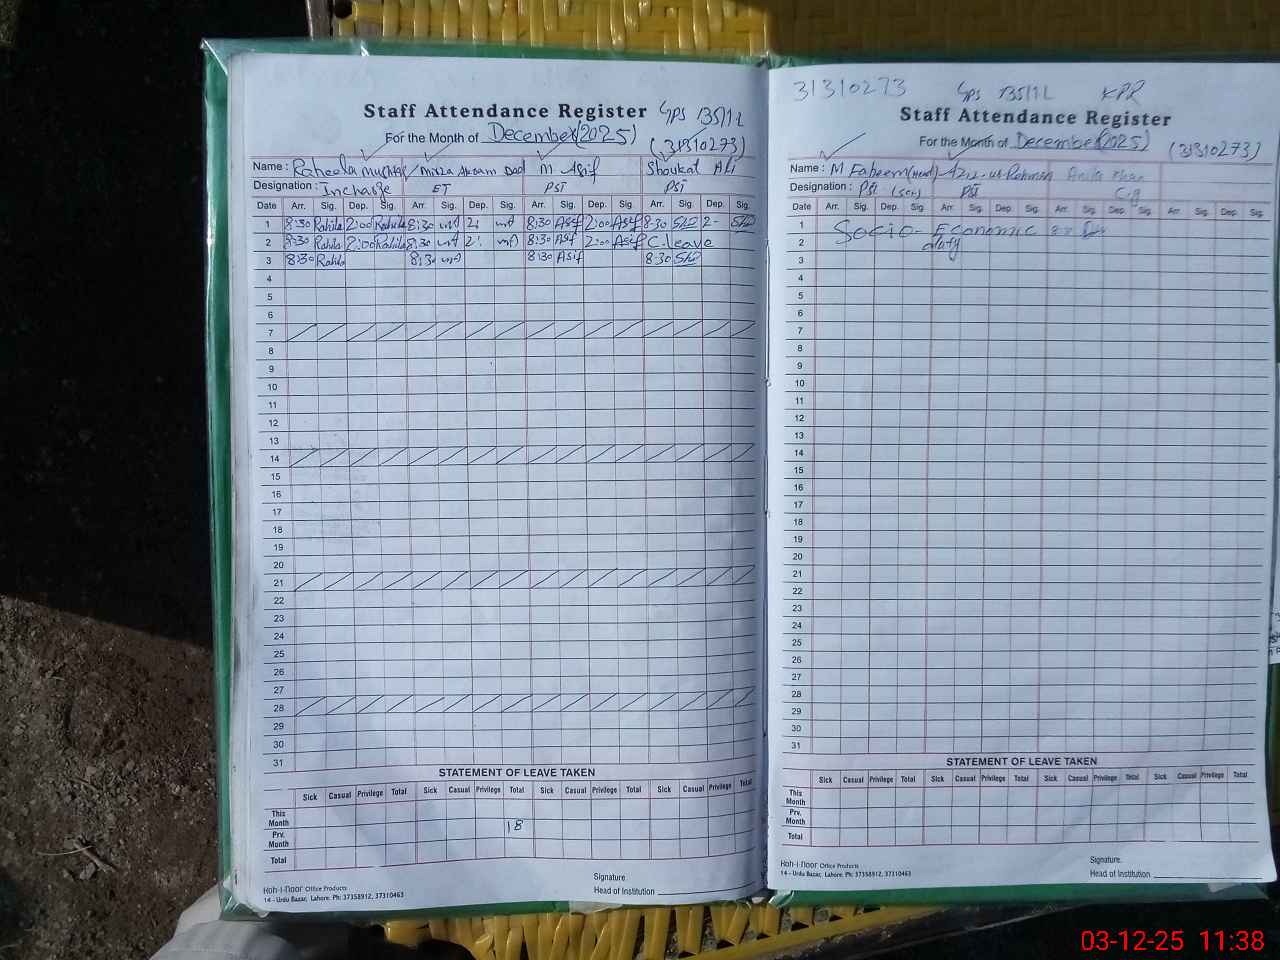 Staff Attendance Register GPS 135/1L
For the Month of December (2025) (31310273)
Name : Raheela Mukhtar Mirza Akram Dad M Asif Shoukat Ali
Designation : Incharge ET PST PST
Date Arr. Sig. Dep. Sig. Arr. Sig. Dep. Sig. Arr. Sig. Dep. Sig. Arr. Sig. Dep. Sig.
1 8:30 Rahila 2:00 Rahila 8:30 2: 8:30 Asif 2:00 Asif 8:30 2-
2 8:30 Rahila 2:00 Rahila 8:30 2: 8:30 Asif 2:00 Asif C.leave
3 8:30 Rahila 8:30 8:30 Asif 8:30
4
5
6
7
8
9
10
11
12
13
14
15
16
17
18
19
20
21
22
23
24
25
26
27
28
29
30
31
STATEMENT OF LEAVE TAKEN
Sick Casual Privilege Total Sick Casual Privilege Total Sick Casual Privilege Total Sick Casual Privilege Total
This Month
Prv. Month 18
Total
Signature.
Head of Institution
Koh-i-noor Office Products
14 - Urdu Bazar, Lahore. Ph: 37358912, 37310463
31310273 GPS 135/1L KPR
Staff Attendance Register
For the Month of December (2025) (31310273)
Name : M Faheem (Head) Aziz-ur-Rehman Anila Khan
Designation : PST PST C.g
Date Arr. Sig. Dep. Sig. Arr. Sig. Dep. Sig. Arr. Sig. Dep. Sig. Arr. Sig. Dep. Sig.
1 Socio-Economic
2 duty
3
4
5
6
7
8
9
10
11
12
13
14
15
16
17
18
19
20
21
22
23
24
25
26
27
28
29
30
31
STATEMENT OF LEAVE TAKEN
Sick Casual Privilege Total Sick Casual Privilege Total Sick Casual Privilege Total Sick Casual Privilege Total
This Month
Prv. Month
Total
Signature.
Head of Institution
Koh-i-noor Office Products
14 - Urdu Bazar, Lahore. Ph: 37358912, 37310463
03-12-25 11:38